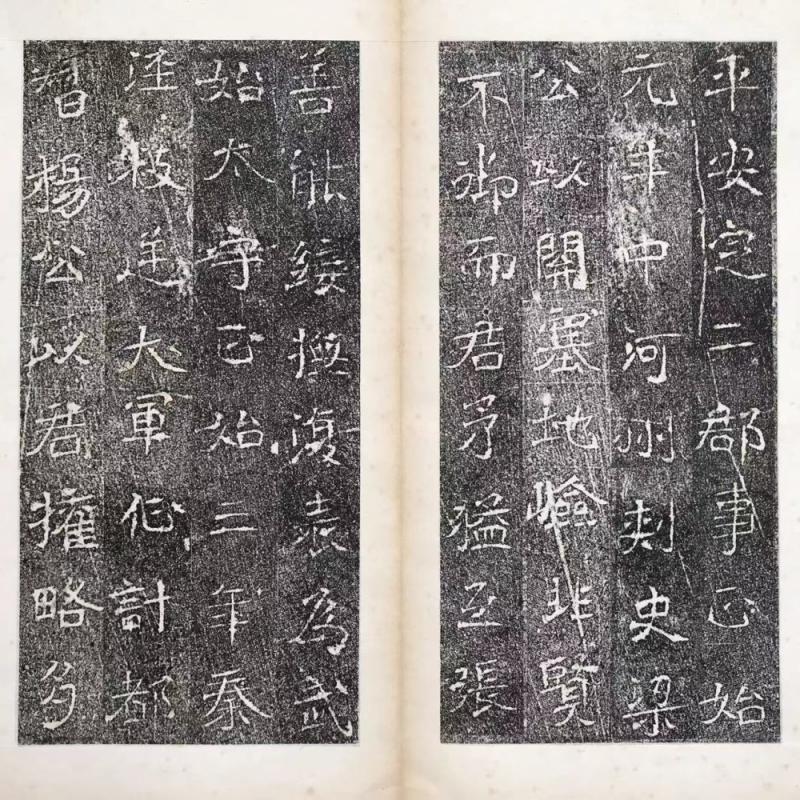 平安定二郡事正始
元年中河州刺史梁
公以開塞地嶮非賢
不御而君矛猛互張
善能綏撫復表為武
始太守正始三年秦
涇叛逆大軍伐計都
督楊公以君權略多